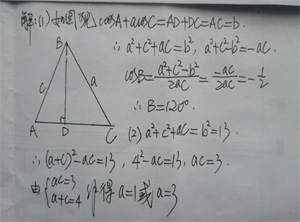 解:(1)如图观 ccosA+acosC=AD+DC=AC=b.
∴a²+c²+ac=b², a²+c²-b²=-ac.
cosB=\frac{a²+c²-b²}{2ac}=\frac{-ac}{2ac}=-\frac{1}{2}
∴B=120°.
B
c
a
A
D
C
(2) a²+c²+ac=b²=13
∴(a+c)²-ac=13, 4²-ac=13, ac=3.
由{ac=3
a+c=4 得 a=1或a=3